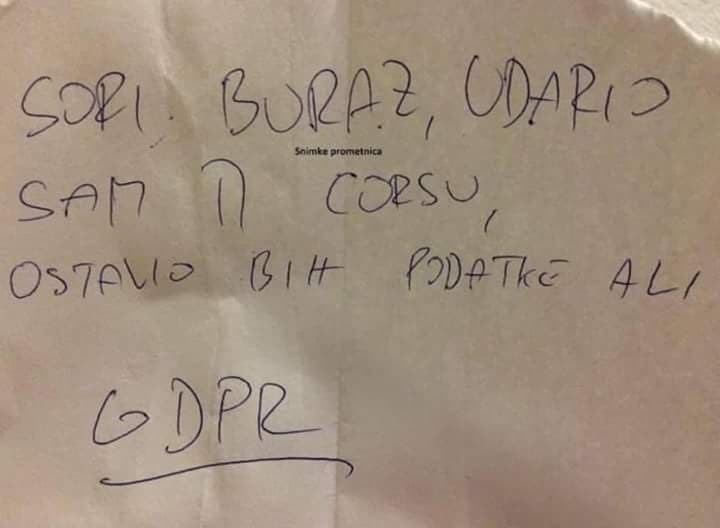 SORI BURAZ, UDARIO
Snimke prometnica
SAM TI CORSU,
OSTAVIO BIH PODATKE ALI
GDPR